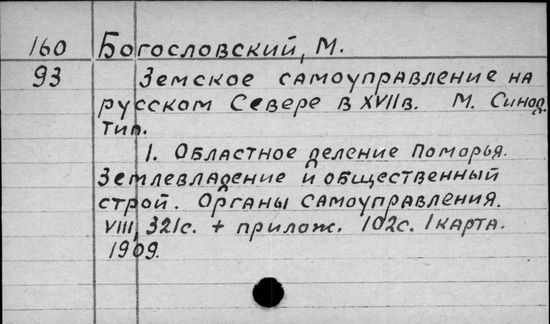 160 Богословский, М.
93 Земское самоуправление на
русском Севере в XVII в. М. Синод.
тип.
1. Областное деление Поморья.
Землевладение и общественный
строй. Органы самоуправления.
VIII, 321с. + прилож. 102с. 1 карта.
1909.